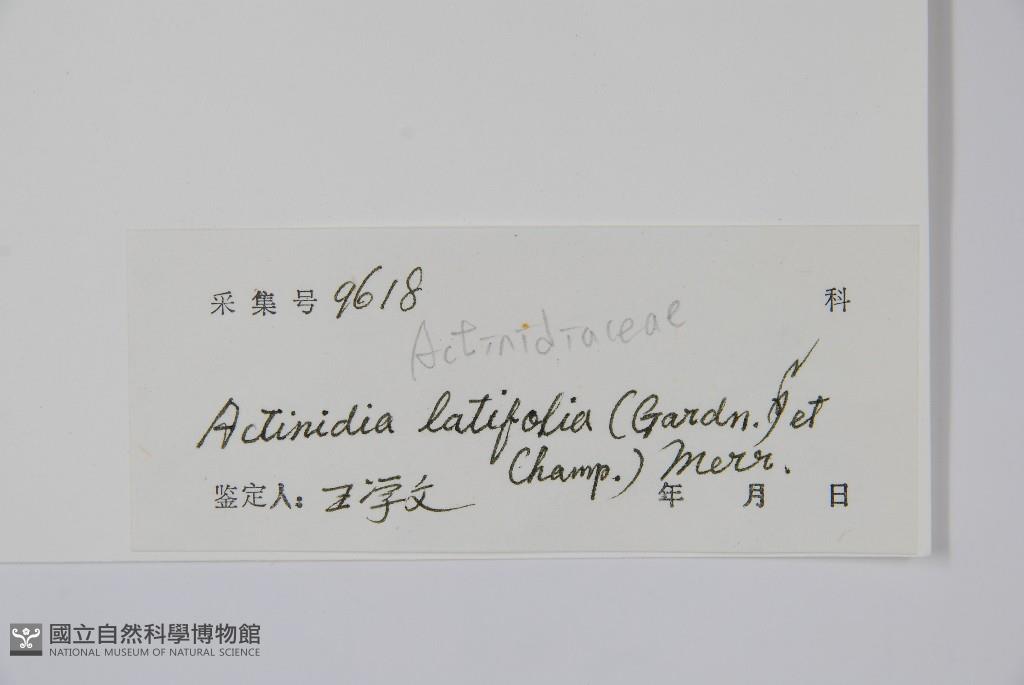 采集号 9618 科
Actinidiaceae
Actinidia latifolia (Gardn.) et
Champ.) Merr.
鉴定人: 王学文 年 月 日
國立自然科學博物館
NATIONAL MUSEUM OF NATURAL SCIENCE